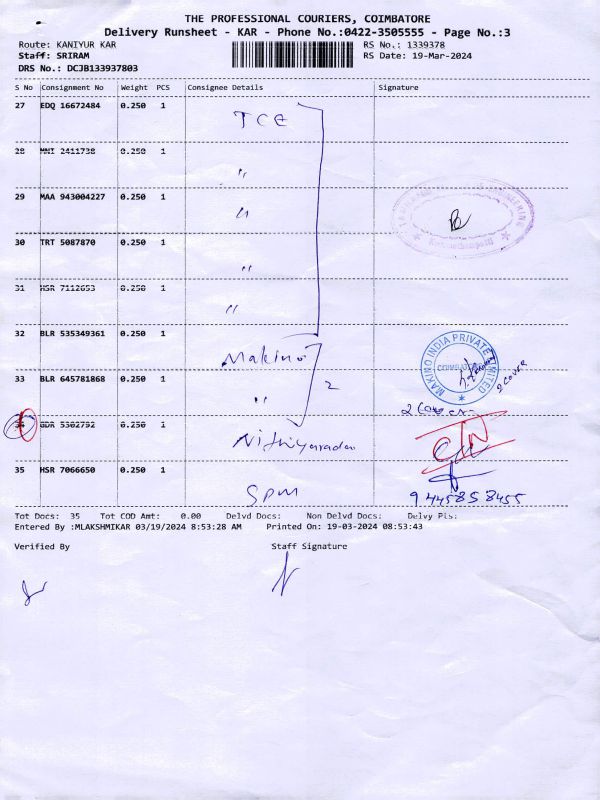 THE PROFESSIONAL COURIERS, COIMBATORE
Delivery Runsheet - KAR - Phone No.:0422-3505555 - Page No.:3
Route: KANIYUR KAR RS No.: 1339378
Staff: SRIRAM RS Date: 19-Mar-2024
DRS No.: DCJB133937803
S No Consignment No Weight PCS Consignee Details Signature
27 EDQ 16672484 0.250 1 TCE
28 MNI 2411738 0.250 1 "
29 MAA 943004227 0.250 1 "
30 TRT 5087870 0.250 1 "
31 HSR 7112653 0.250 1 "
32 BLR 535349361 0.250 1 Makino
MAKINO INDIA PRIVATE LIMITED
COIMBATORE
2 COVER
33 BLR 645781868 0.250 1 " 2
2 Cover
34 5302792 0.250 1
35 HSR 7066650 0.250 1 SPM
9445858455
Tot Docs: 35 Tot COD Amt: 0.00 Delvd Docs: Non Delvd Docs: Delvy Pts:
Entered By :MLAKSHMIKAR 03/19/2024 8:53:28 AM Printed On: 19-03-2024 08:53:43
Verified By Staff Signature